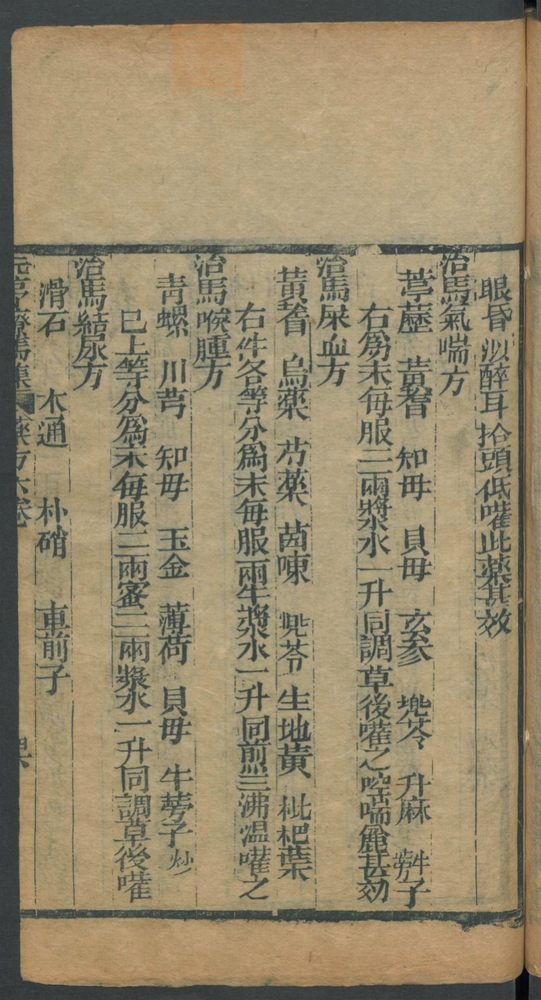 眼昏似醉耳抬頭低嚾此藥甚效
治馬氣喘方
葶藶 黃耆 知母 貝母 玄参 兠苓 升麻 牛蒡子
右為末每服二兩漿水一升同調草後嚾之啌喘麄甚効
治馬尿血方
黃耆 烏藥 芍藥 茵陳 兠苓 生地黃 枇杷葉
右件各等分爲末每服兩半漿水一升同煎三沸温嚾之
治馬喉腫方
青螺 川芎 知母 玉金 薄荷 貝母 牛蒡子炒
已上等分爲末每服二兩蜜二兩漿水一升同調草後嚾
治馬結尿方
滑石 木通 朴硝 車前子
元亨療馬集 藥方六卷